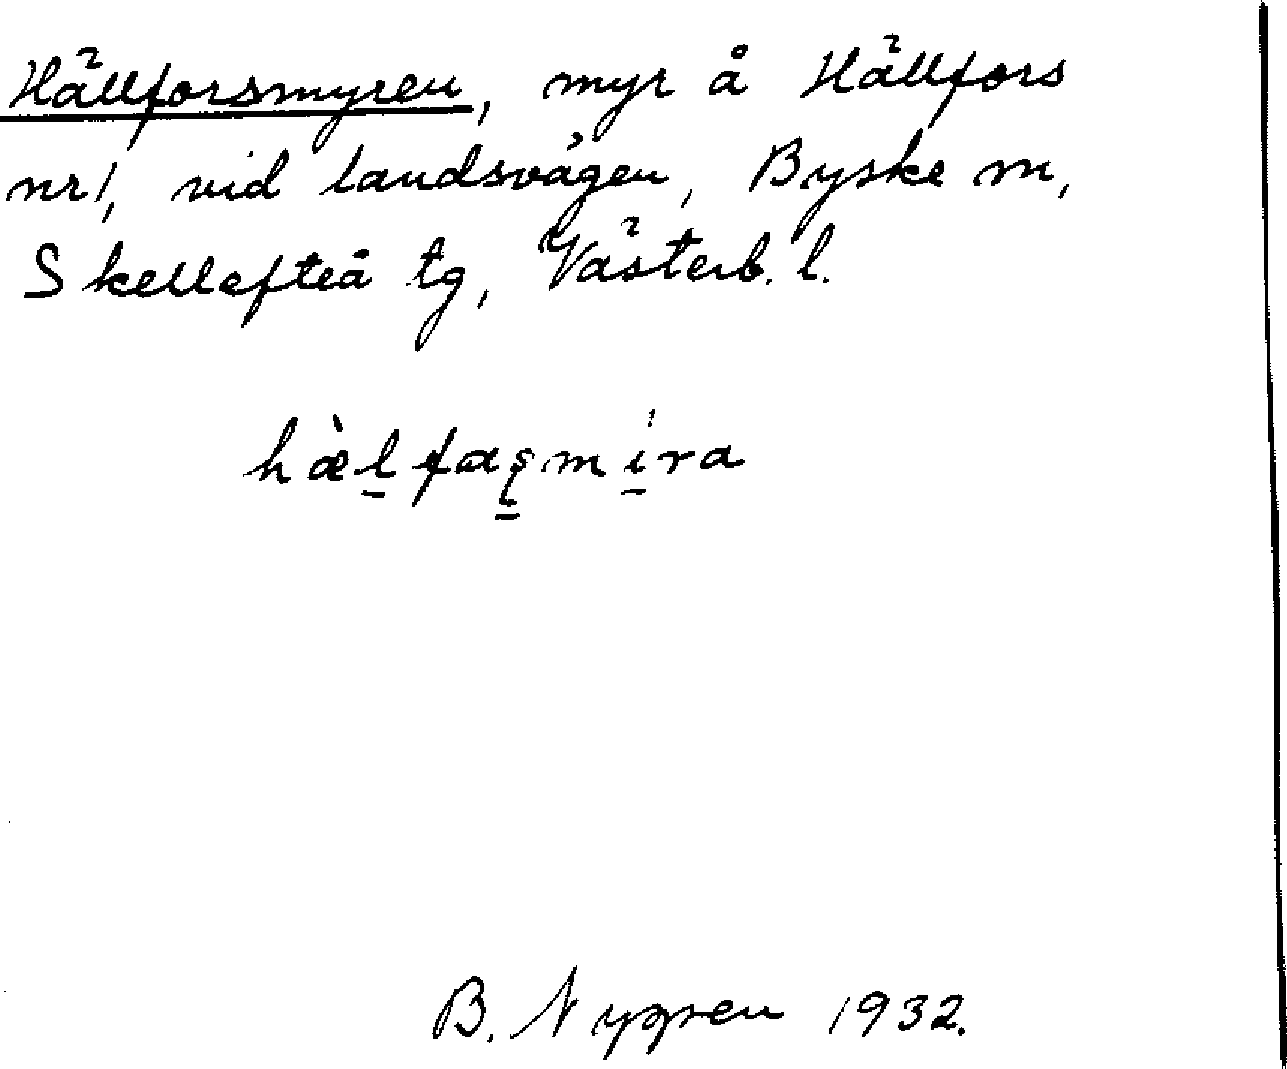 Hällforsmyren, myr å Hällfors
nr 1, vid landsvägen, Byske m,
Skellefteå tg, Västerb. l.
B. Nygren 1932.